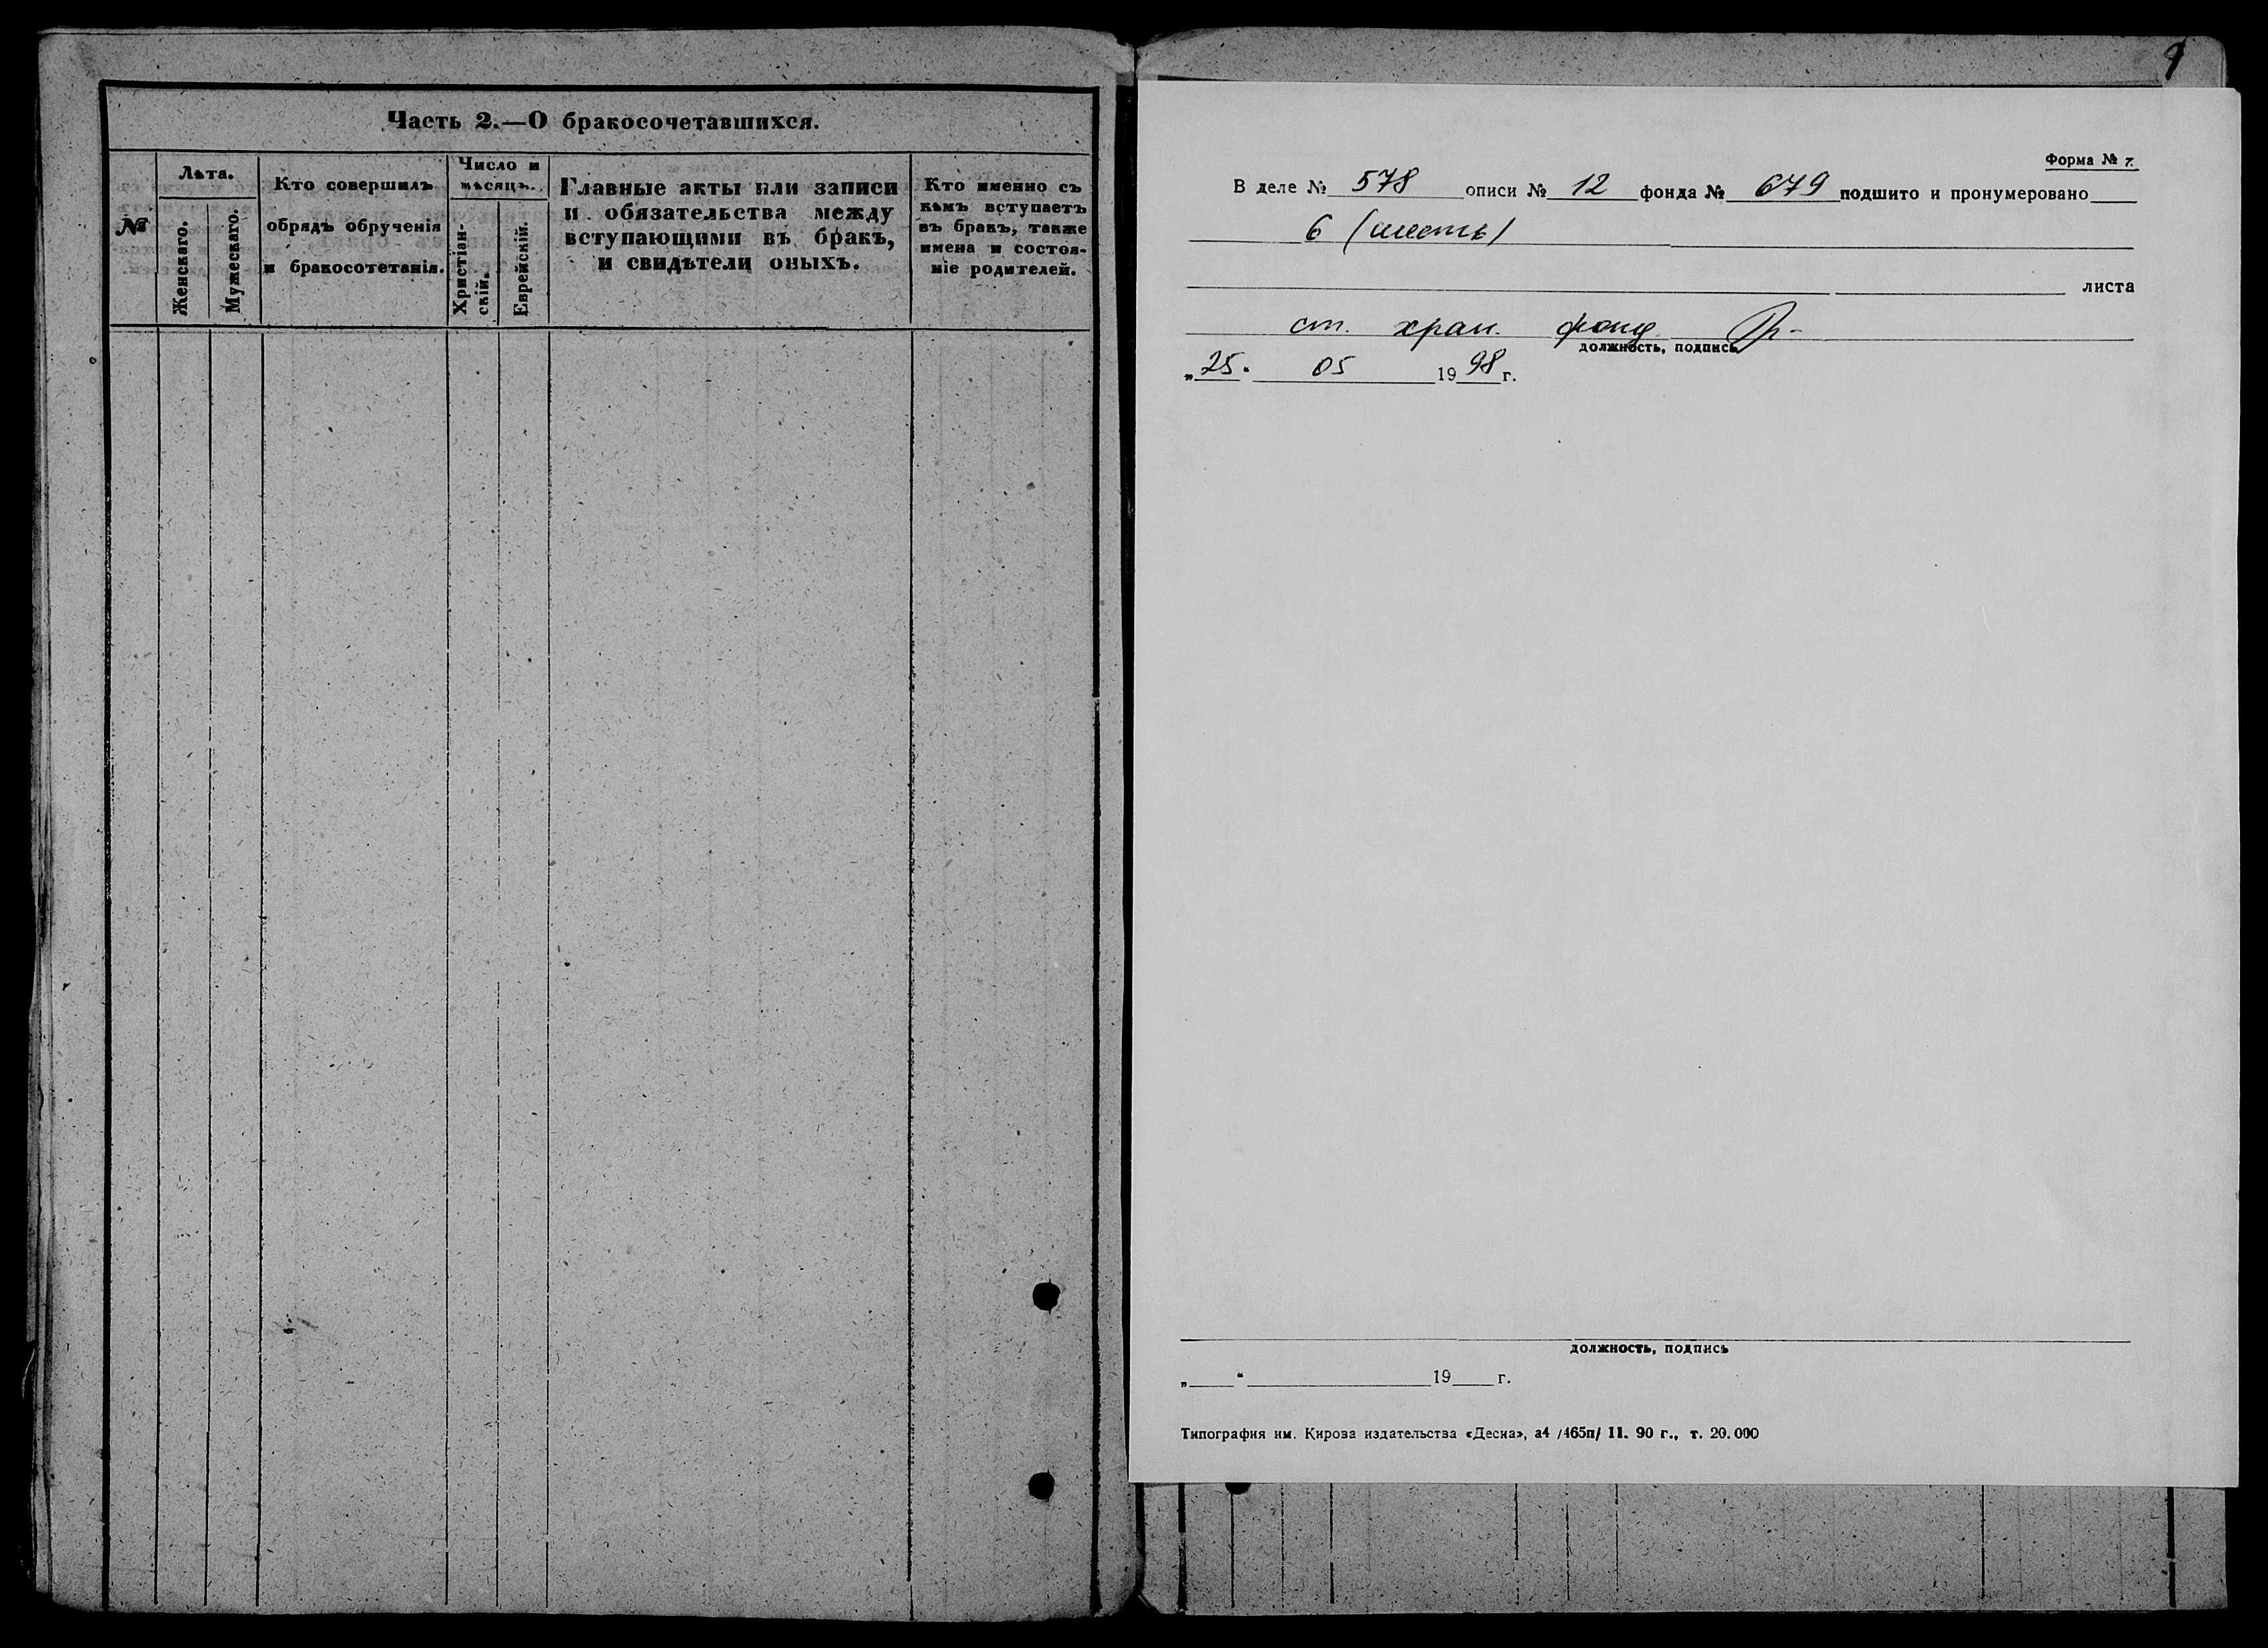 Часть 2.—О бракосочетавшихся.
№
Лѣта.
Женскаго.
Мужескаго.
Кто совершилъ
обрядъ обрученія
и бракосотетанія.
Число и
мѣсяцъ.
Христіан-
скій.
Еврейскій.
Главные акты или записи
и обязательства между
вступающими въ бракъ,
и свидѣтели оныхъ.
Кто именно съ
кѣмъ вступаетъ
въ бракъ, также
имена и состоя-
ніе родителей.
Форма № 7.
В деле № 578 описи № 12 фонда № 679 подшито и пронумеровано
6 (шесть)
листа
ст. хран. фонд
должность, подпись
„25“ 05 1998 г.
должность, подпись
„ “ 19 г.
Типография им. Кирова издательства «Десна», а4 /465п/ 11. 90 г., т. 20.000